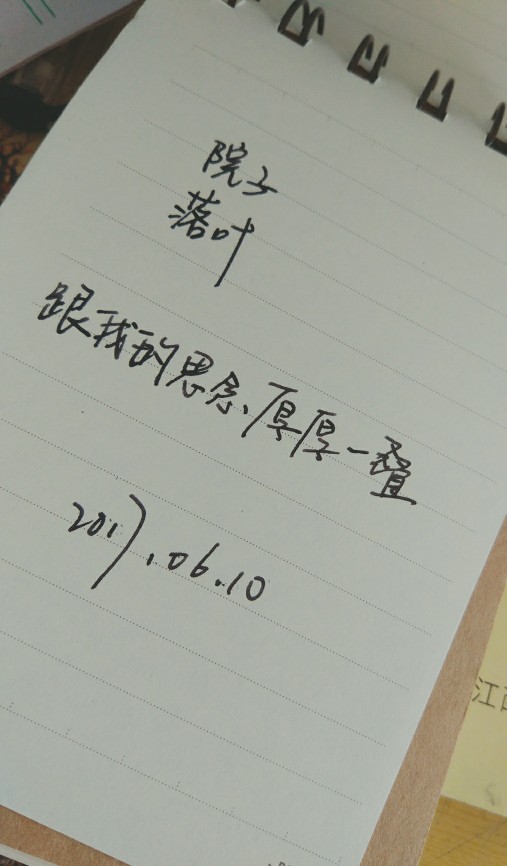 院子
落叶
跟我的思念厚厚一叠
2017.06.10
江